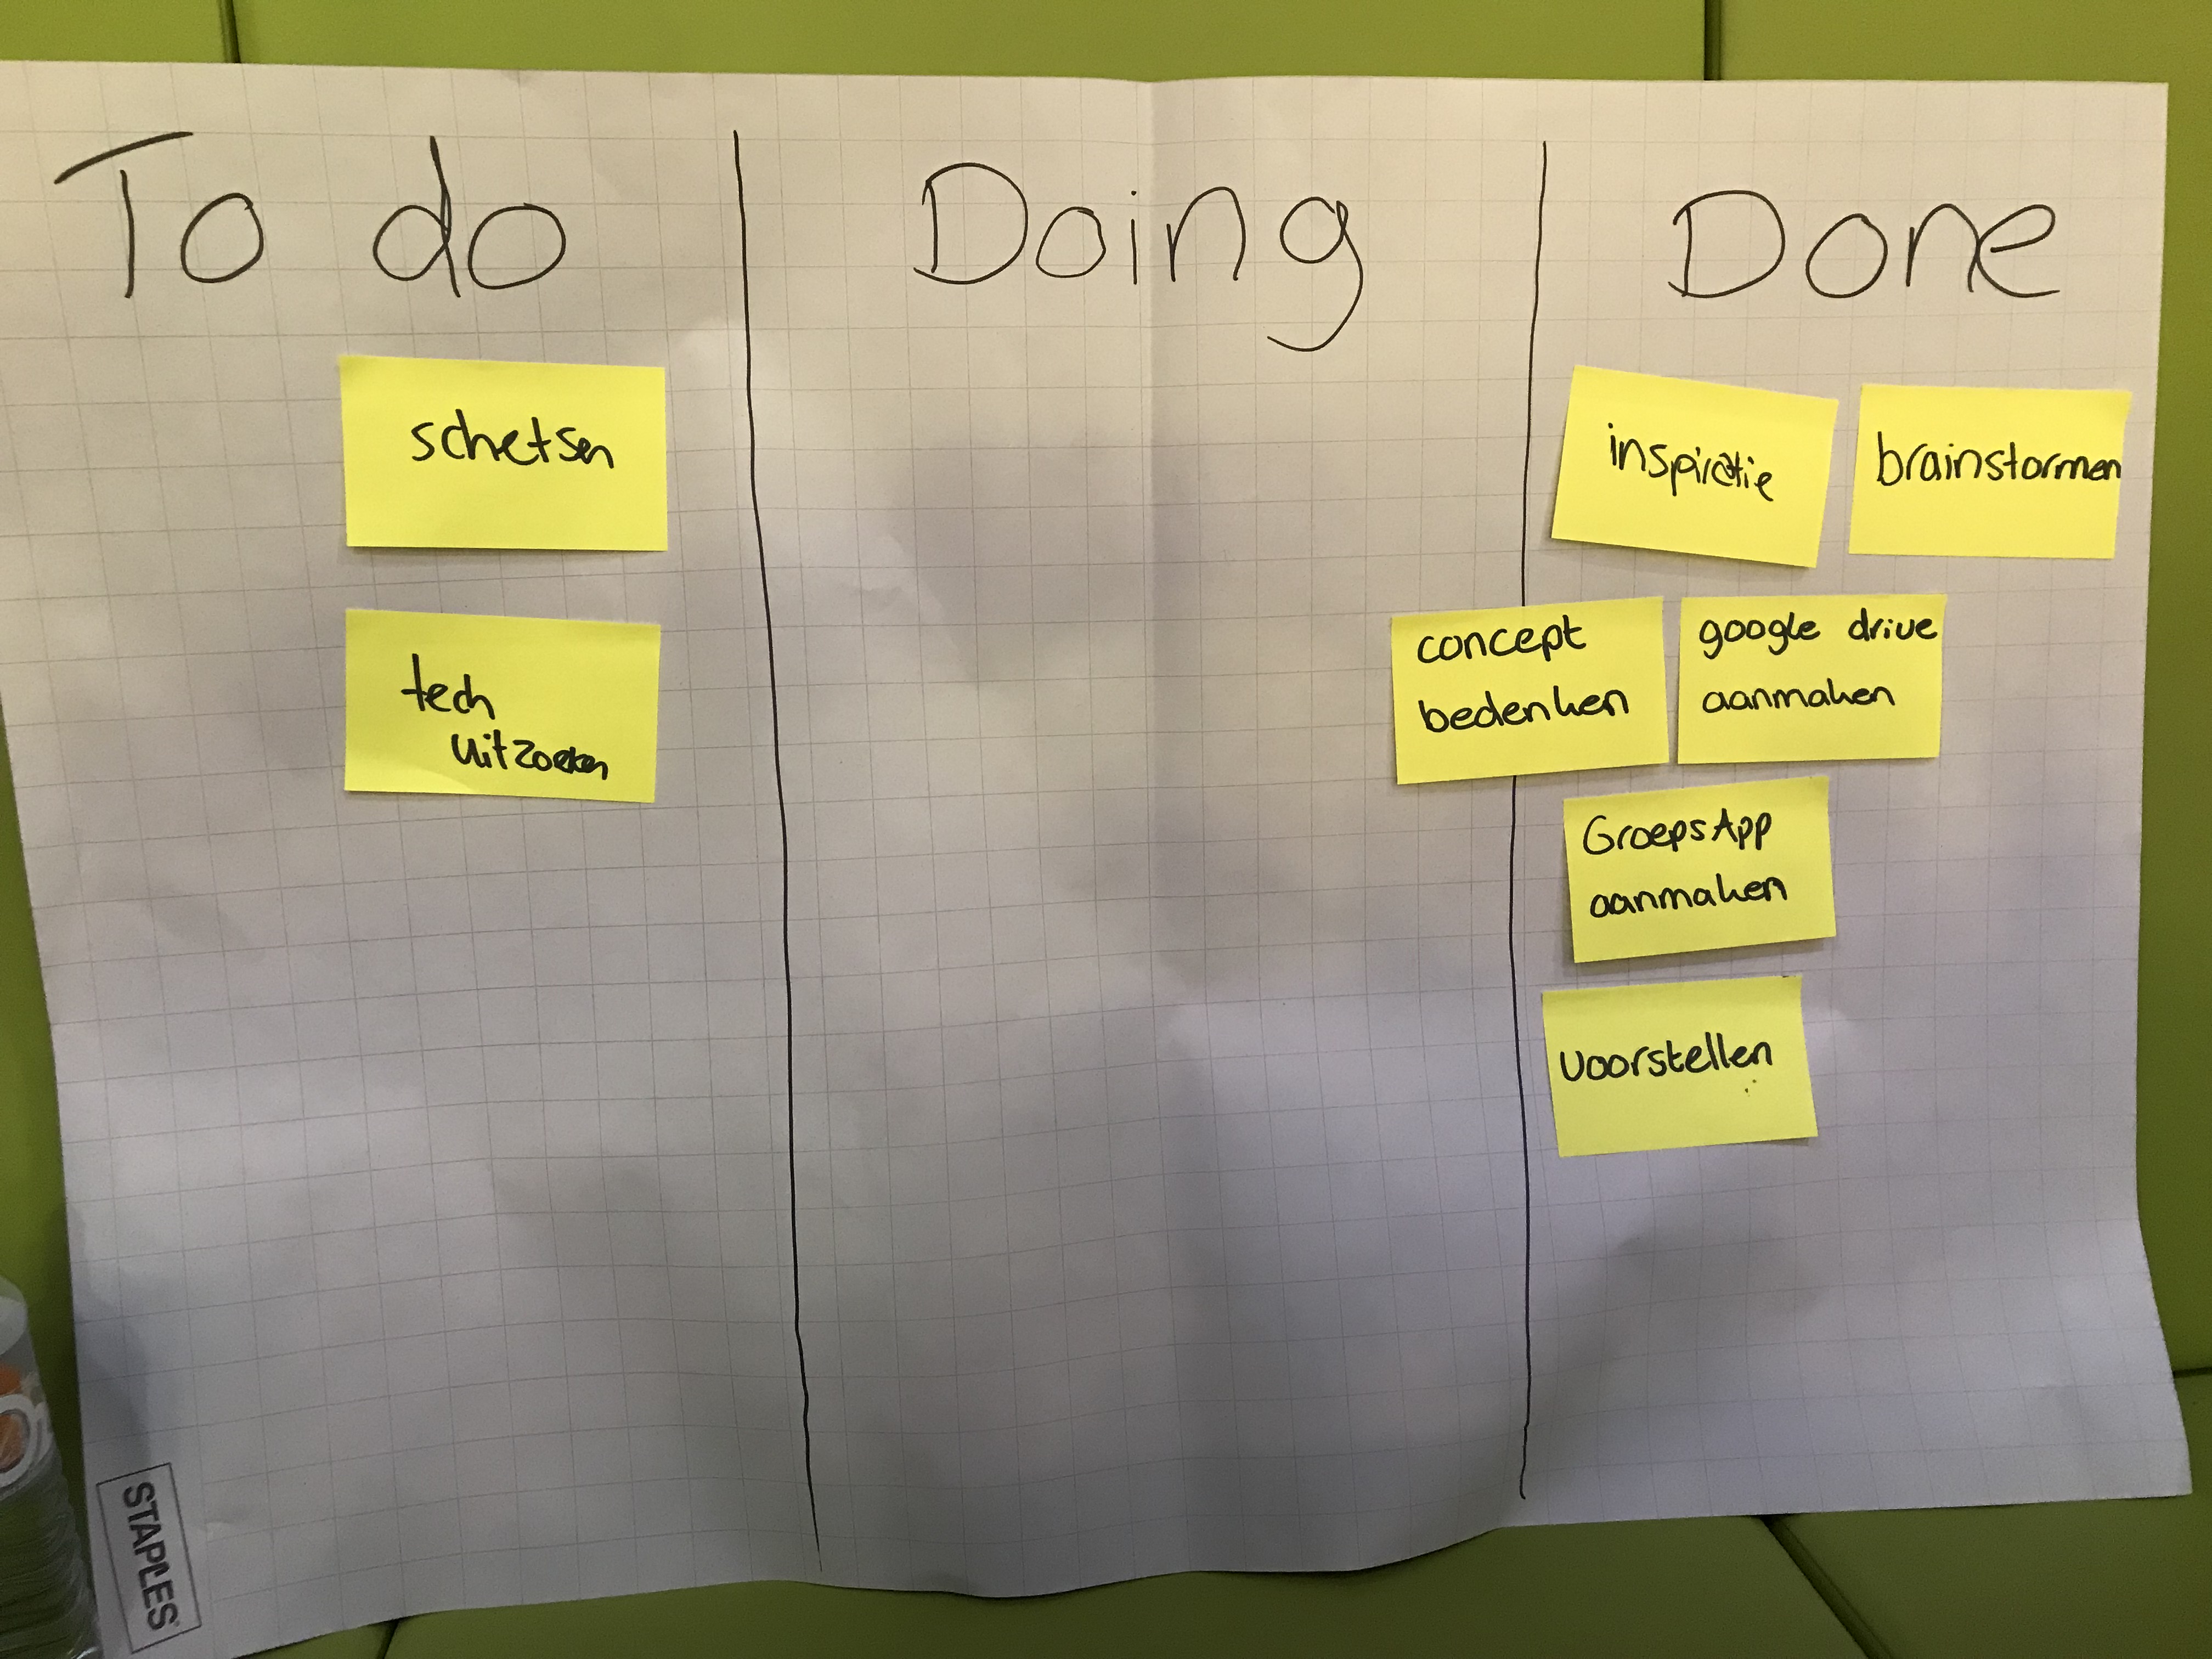 To do
Doing
Done
schetsen
tech
uitzoeken
inspiratie
brainstormen
concept
bedenken
google drive
aanmaken
GroepsApp
aanmaken
voorstellen
STAPLES